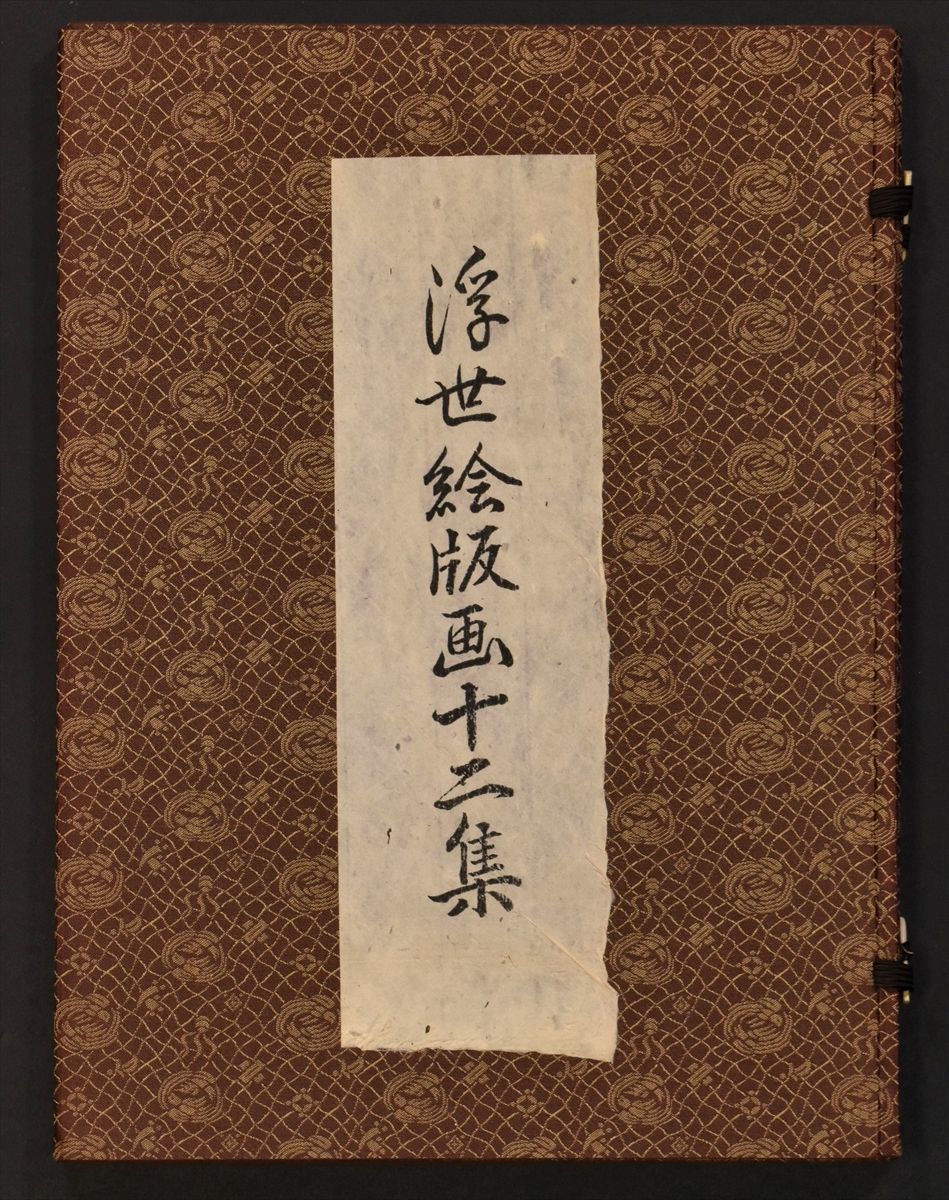 浮世絵版画十二集